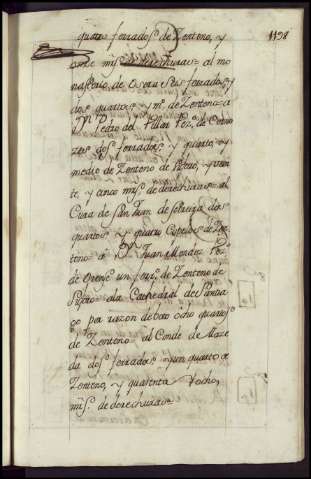 1198
quatro ferrados de Zenteno, y
once mrs. de derechuras al mo
nasterio, de osera seis ferrados, y
dos quartos y mo. de Zenteno a
Dn. Pedro del Villar Vezo. de
zes dos ferrados, y quarto, y
medio de Zenteno de y vein
te, y cinco mrs. de derechuras al
Cura de San Juan de dos
quartos, y quatro Copelos de Zen
teno a Dn. Juan Vezo.
de Orense un ferdo. de Zenteno de
ala Cathedral de Santia
go por razon de Voto ocho quartos
de Zenteno al Conde de Maze
da dos ferrados, y un quarto de
Zenteno, y quarenta y ocho,
mrs. de derechuras